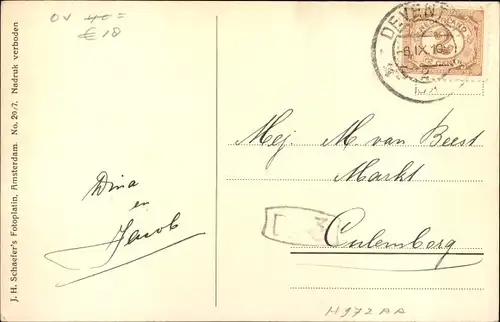 OV 40=
€ 18
J. H. Schaefer's Fotoplatin, Amsterdam. No. 29/7. Nadruk verboden
DEVENT
Mej. M. van Beest
Markt
Culemborg
Dina
en
Jacob
H972AA